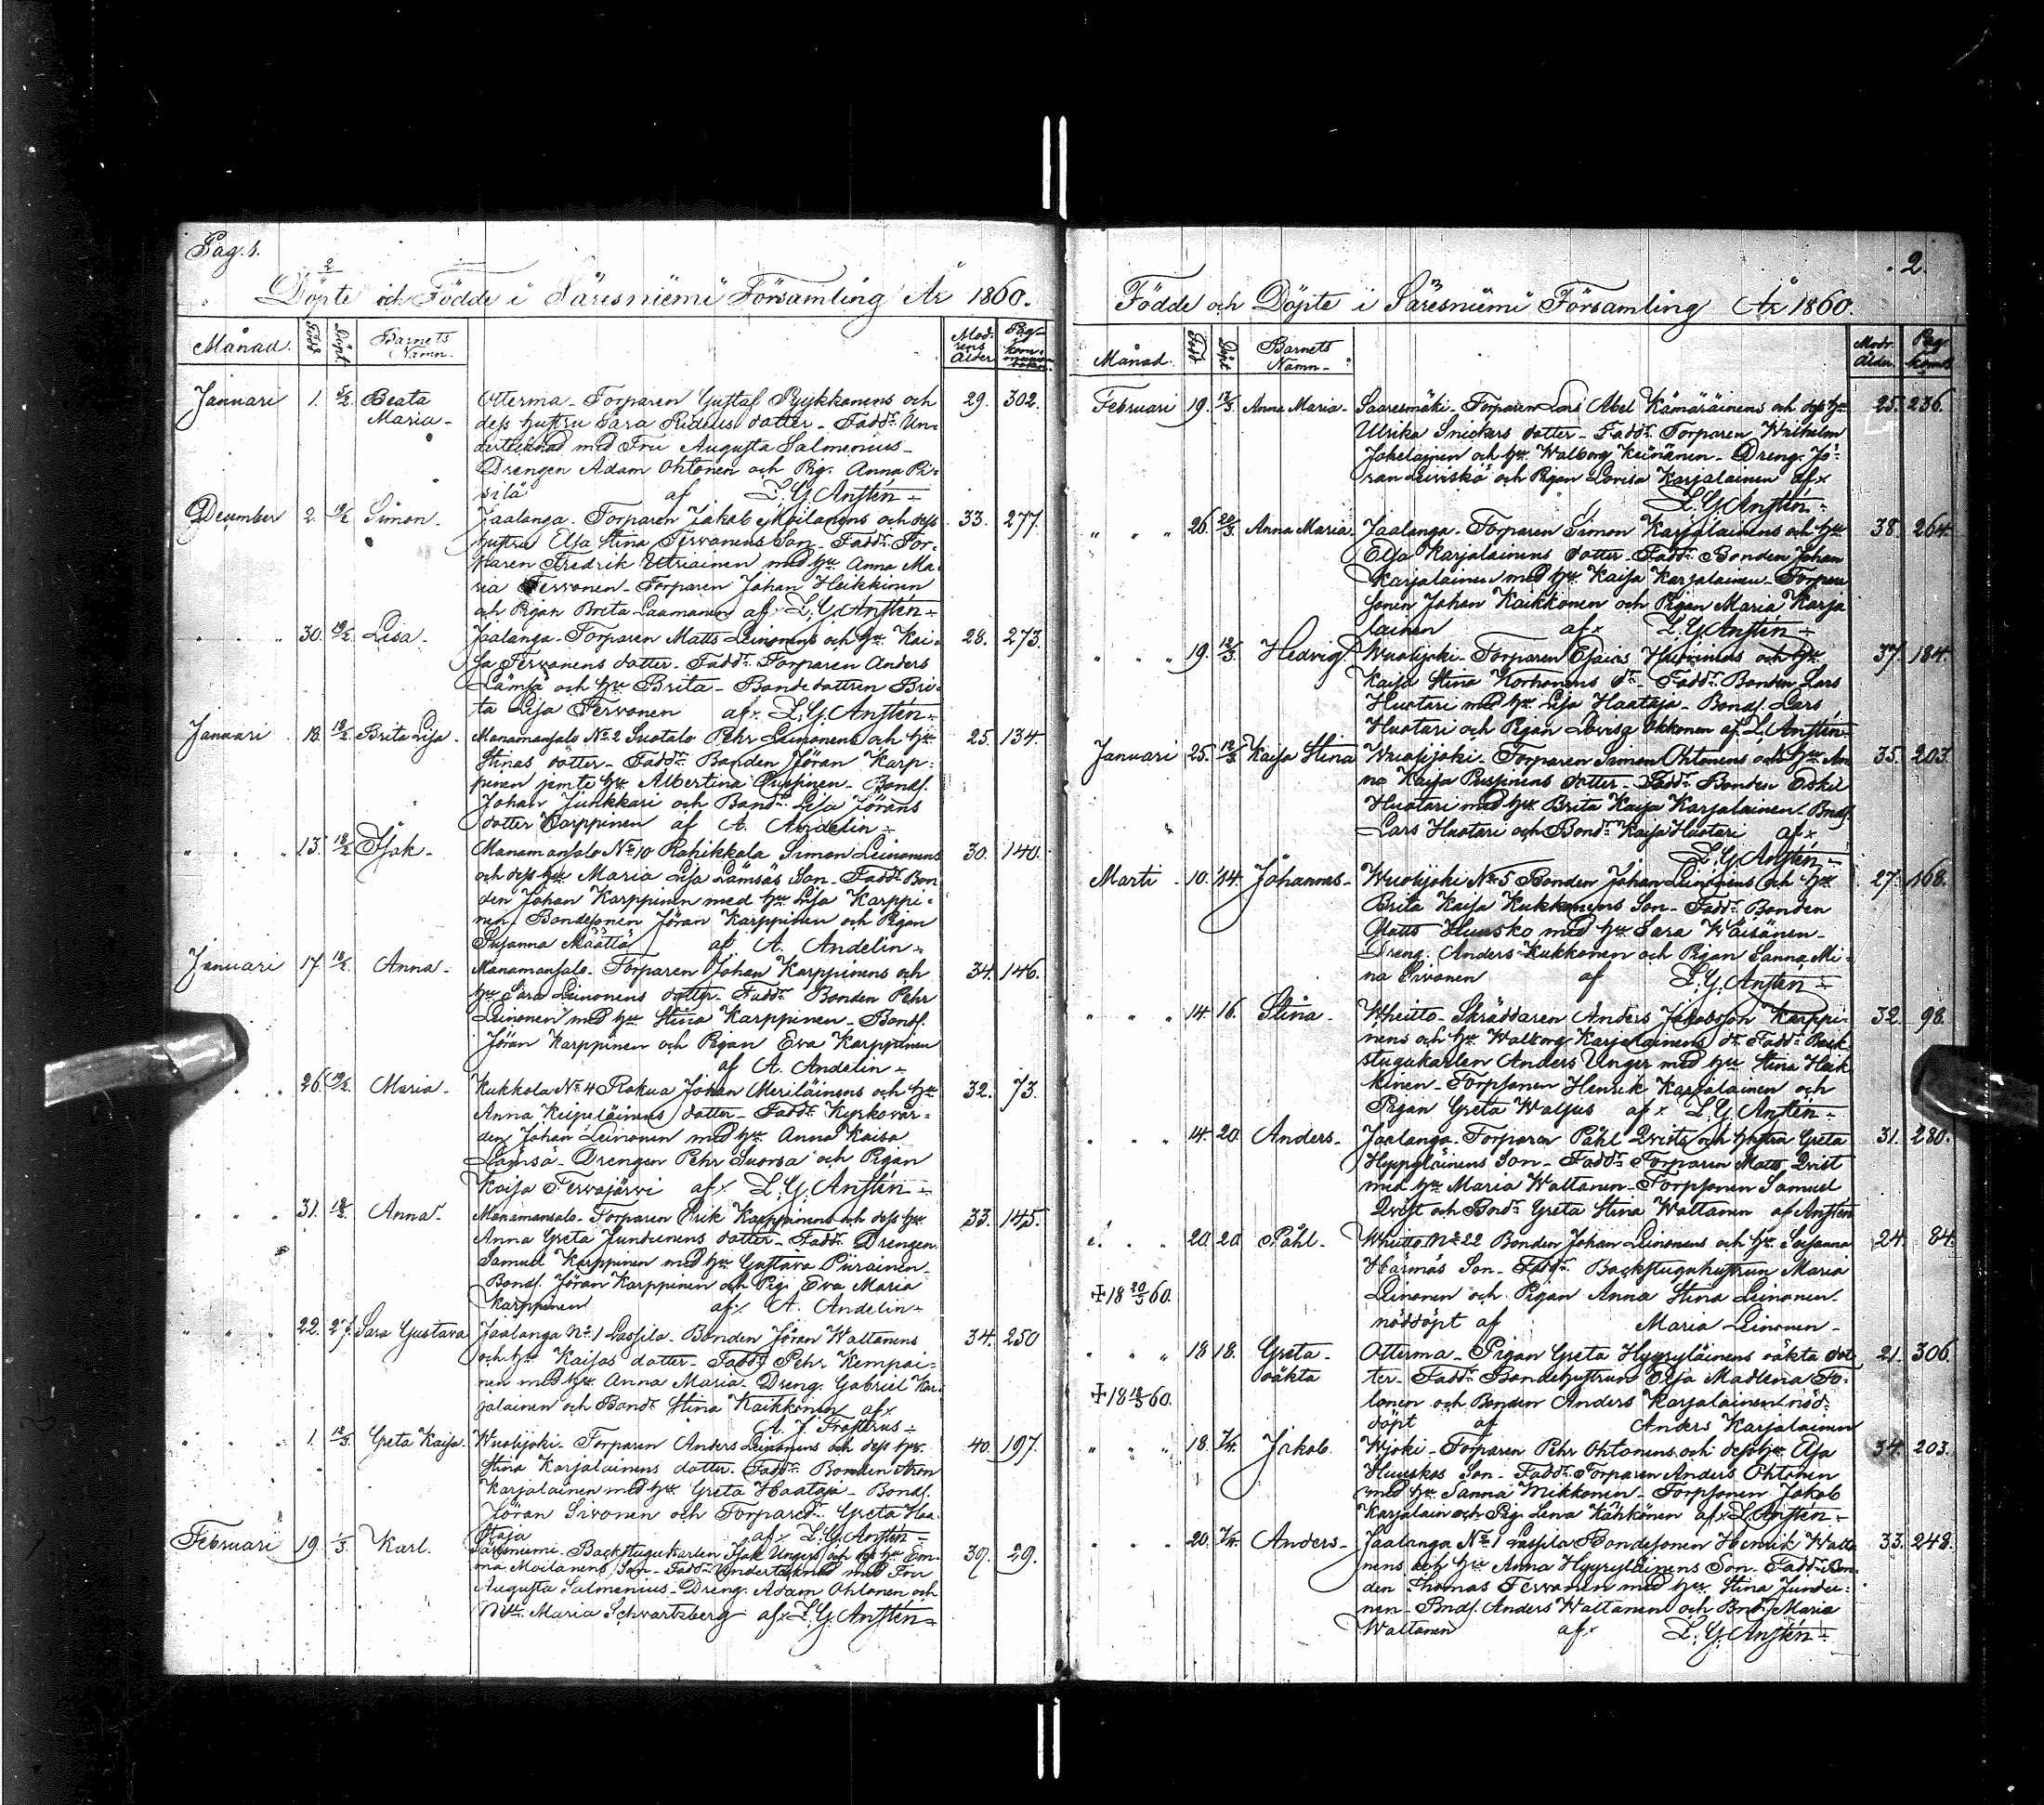 Pag. 1.
Döpte och Födde i Säresniemi Församling År 1860.
Månad. Född Döpt Barnets Namn. Mod-rens Ålder Pag.
Januari 1. 5/2 Beata Otterma - Torparen Gustaf Pyykkonens och 29. 302.
Maria - dess hustru Sara Ridelius dotter - Fadd: Un-
dertecknad med Fru Augusta Salmenius -
Drengen Adam Ohtonen och Pig. Anna Pi-
silä af L. G. Anstén
December 2. Simon. Jaalanga. Torparen Jakob Moilanens och dess 33. 277.
hustru Elsa Stina Tervonens Son - Fadd: Tor-
paren Fredrik Utriainen med hu Anna Ma-
ria Tervonen - Torparen Johan Heikkinen
och Pigan Brita Laamanen af L. G. Anstén
" " 30. Lisa. Jaalanga - Torparen Matts Leinonens och hu Kai- 28. 273.
sa Tervonens dotter - Fadd: Torparen Anders
Lämsä och hu Brita - Bondedottren Bri-
ta Lisa Tervonen af L. G. Anstén
Januari 18. 18/2 Brita Lisa - Manamansalo No 2 Suotalo Pehr Leinonens och hu 25. 134.
Stinas dotter - Fadd: Bonden Jöran Karp-
pinen jemte hu Albertina - Bonds.
Johan Junkkari och Bond: Lisa Jörans
dotter Karppinen af A. Andelin
" " 13. 18/2 Isak - Manamansalo No 10 Rahikkala Simon Leinonens 30. 140.
och dess hu Maria Lisa Lämsäs Son - Fadd: Bon
den Johan Karppinen med hu Lisa Karppi-
nen, Bondesonen Jöran Karppinen och Pigan
Susanna Määttä af A. Andelin
Januari 17. 18/2 Anna - Manamansalo - Torparen Johan Karppinens och 34. 146.
hu Sara Leinonens dotter - Fadd: Bonden Pehr
Leinonen med hu Stina Karppinen - Bonds.
Jöran Karppinen och Pigan Eva Karppinen
af A. Andelin
" " 26. Maria - Kukkola No 4 Rokua Johan Meriläinens och hu 32. 73.
Anna Keipeläinens dotter - Fadd: Kyrkovär-
den Johan Leinonen med hu Anna Kaisa
Lämsä - Drengen Pehr Suorsa och Pigan
Kaisa Tervajärvi af L. G. Anstén
" " 31. 18/2 Anna Manamansalo - Torparen Erik Karppinens och dess hu 33. 145.
Anna Greta Juntunens dotter - Fadd: Drengen
Samuel Karppinen med hu Gustava Piirainen -
Bonds. Jöran Karppinen och Pig. Eva Maria
Karppinen af A. Andelin
" " 22. 27/ Sara Gustava Jaalanga No 1 Lassila - Bonden Jöran Waltanens 34. 250
och hu Kaisas dotter - Fadd: Pehr Kempai-
nen med hu Anna Maria. Dreng. Gabriel Kar-
jalainen och Bond: Stina Kaikkonen af
A. J. Frosterus
" " 1. 12/3 Greta Kaisa. Wuolijoki - Torparen Anders Leinonens och dess hu 40. 197.
Stina Karjalainens dotter. Fadd: Bonden Aron
Karjalainen med hu Greta Haataja - Bonds.
Jöran Sivonen och Torpared: Greta Haa-
taja af L. G. Anstén
Februari 19. 1/3 Karl. Säresniemi - Backstugukarlen Isak Ungers och dess hu Em- 39. 29.
ma Moilanens Son - Fadd: Undertecknad med Fru
Augusta Salmenius - Dreng. Adam Ohtonen och
Maria Schvartzberg af L. G. Anstén
2.
Födde och Döpte i Säresniemi Församling År 1860.
Månad. Född Döpt Barnets Namn - Modr. Ålder. Pag.
Februari 19. 12/3 Anna Maria - Saaresmäki - Torparen Lars Abel Kämäräinens och dess hu 25. 236.
Ulrika Snickers dotter - Fadd: Torparen Wilhelm
Jokelainen och hu Walborg Keinänen - Dreng. Jö-
ran Leiviskä och Pigan Lovisa Karjalainen af
L. G. Anstén
" " 26. 20/3 Anna Maria. Jaalanga - Torparen Simon Karjalainens och hu 38. 264.
Elsa Karjalainens dotter - Fadd: Bonden Johan
Karjalainen med hu Kaisa Karjalainen - Torpare
sonen Johan Kaikkonen och Pigan Maria Karja
lainen af L. G. Anstén
" " 19. 12/3 Hedvig Wuolijoki - Torparen Esaias och hu 37. 184.
Kaisa Stina Korhonens dr Fadd: Bonden Lars
Huotari med hu Lisa Haataja - Bonds. Lars
Huotari och Pigan Lovisa Okkonen af L. Anstén
Januari 25. 12/3 Kaisa Stina Wuolijoki - Torparen Simon Ohtonens och hu An 35. 203.
na Kaisa dotter - Fadd: Bonden Eskil
Huotari med hu Brita Kaisa Karjalainen - Bnds.
Lars Huotari och Bond: Kaisa Huotari af
L. G. Anstén
Marti 10. 14. Johannes - Wuolijoki No 5 Bonden Johan Leinonens och hu 27. 168.
Brita Kaisa Kukkonens Son - Fadd: Bonden
Matts Huusko med hu Sara Waisänen -
Dreng. Anders Kukkonen och Pigan Sanna Mi-
na Sivonen af L. G. Anstén
" " 14. 16. Stina - Wheitto - Skräddaren Anders Jakobsson Karppi- 32. 98.
nens och hu Walborg Karjalainens dr Fadd: Back
stugukarlen Anders Unger med hu Stina Heik
kinen - Torpsonen Henrik Karjalainen och
Pigan Greta Waljus af L. G. Anstén
" " 14. 20. Anders - Jaalanga - Torparen Påhl Qvists och hustru Greta 31. 280.
Hyyryläinens Son - Fadd: Torparen Matts Qvist
med hu Maria Waltanen - Torpsonen Samuel
Qvist och Bond: Greta Stina Waltanen af Anstén
" " 20. 20 Påhl - Wheitto No 22 Bonden Johan Leinonens och hu Susanna 24. 84.
Härmäs Son - Fadd: Backstuguhustrun Maria
✝ 18 20/3 60. Leinonen och Pigan Anna Stina Leinonen -
nöddöpt af Maria Leinonen -
" " 18 18. Greta - Otterma - Pigan Greta Hyyryläinens oäkta dot 21. 306.
oäkta ter - Fadd: Bondehustrun Elsa Madlena To-
✝ 18 18/3 60. lonen och Bonden Anders Karjalainen nöd-
döpt af Anders Karjalainen
" " 18. 7/4. Jakob. Wjoki - Torparen Pehr Ohtonens och dess hu Elsa 34. 203.
Huuskos Son - Fadd: Torparen Anders Ohtonen
med hu Sanna Mikkonen - Torpsonen Jakob
Karjalain och Pig. Lena Kähkönen af L. Anstén
" " 20. 7/4. Anders - Jaalanga No 1 Lassila Bondesonen Henrik Walta 33. 248.
nens och hu Anna Hyyryläinens Son - Fadd: Bon-
den Thomas Tervonen med hu Stina Juntu-
nen - Bnds. Anders Waltanen och Bnd: Maria
Waltanen af L. G. Anstén